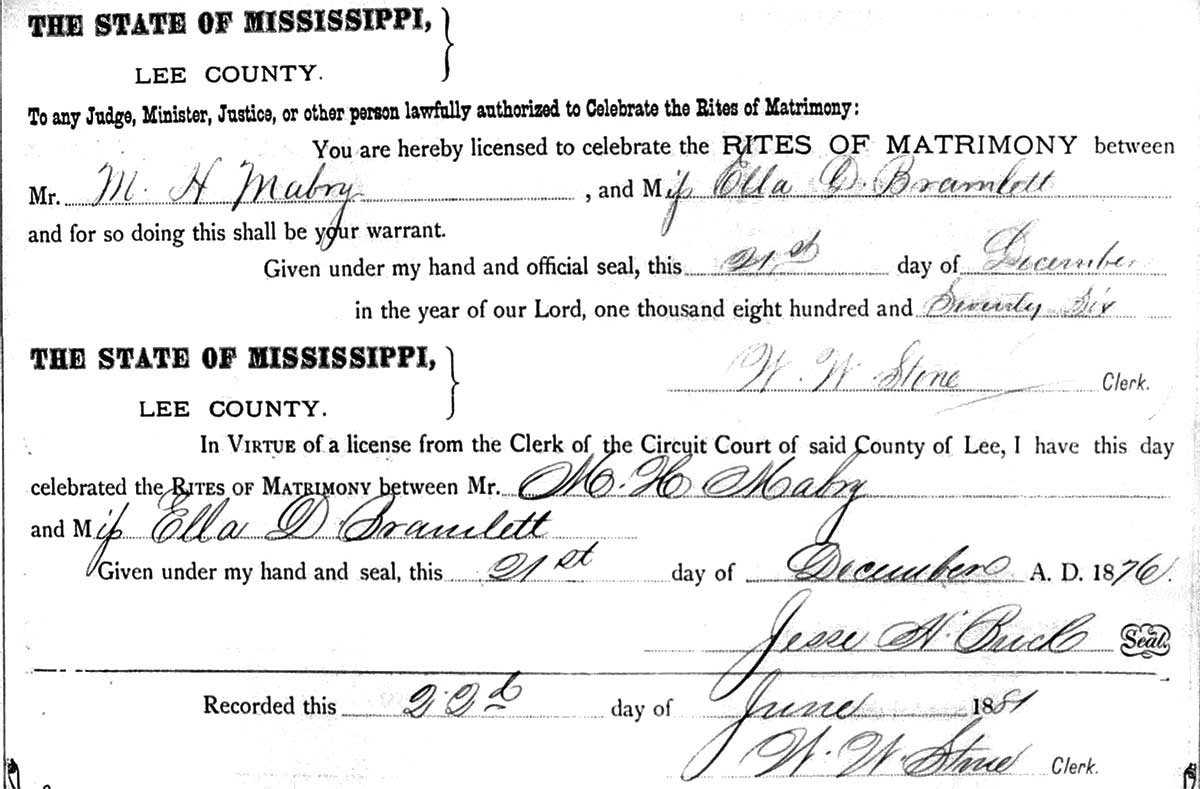 THE STATE OF MISSISSIPPI,
LEE COUNTY.
To any Judge, Minister, Justice, or other person lawfully authorized to Celebrate the Rites of Matrimony:
You are hereby licensed to celebrate the RITES OF MATRIMONY between
Mr. M. H Mabry, and Miss Ella D. Bramlett
and for so doing this shall be your warrant.
Given under my hand and official seal, this 21st day of December
in the year of our Lord, one thousand eight hundred and Seventy Six
W. W. Stone Clerk.
THE STATE OF MISSISSIPPI,
LEE COUNTY.
In VIRTUE of a license from the Clerk of the Circuit Court of said County of Lee, I have this day
celebrated the RITES OF MATRIMONY between Mr. M. H. Mabry
and Miss Ella D Bramlett
Given under my hand and seal, this 21st day of December A. D. 1876.
Jesse Seal.
Recorded this 22d day of June 1881
W. W. Stone Clerk.